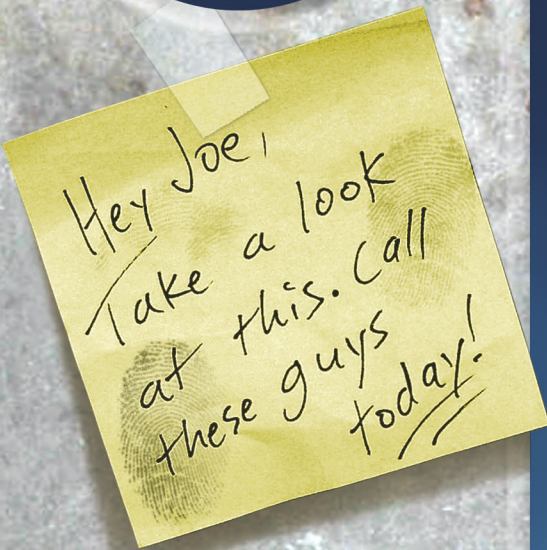 Hey Joe,
Take a look
at this. Call
these guys
today!